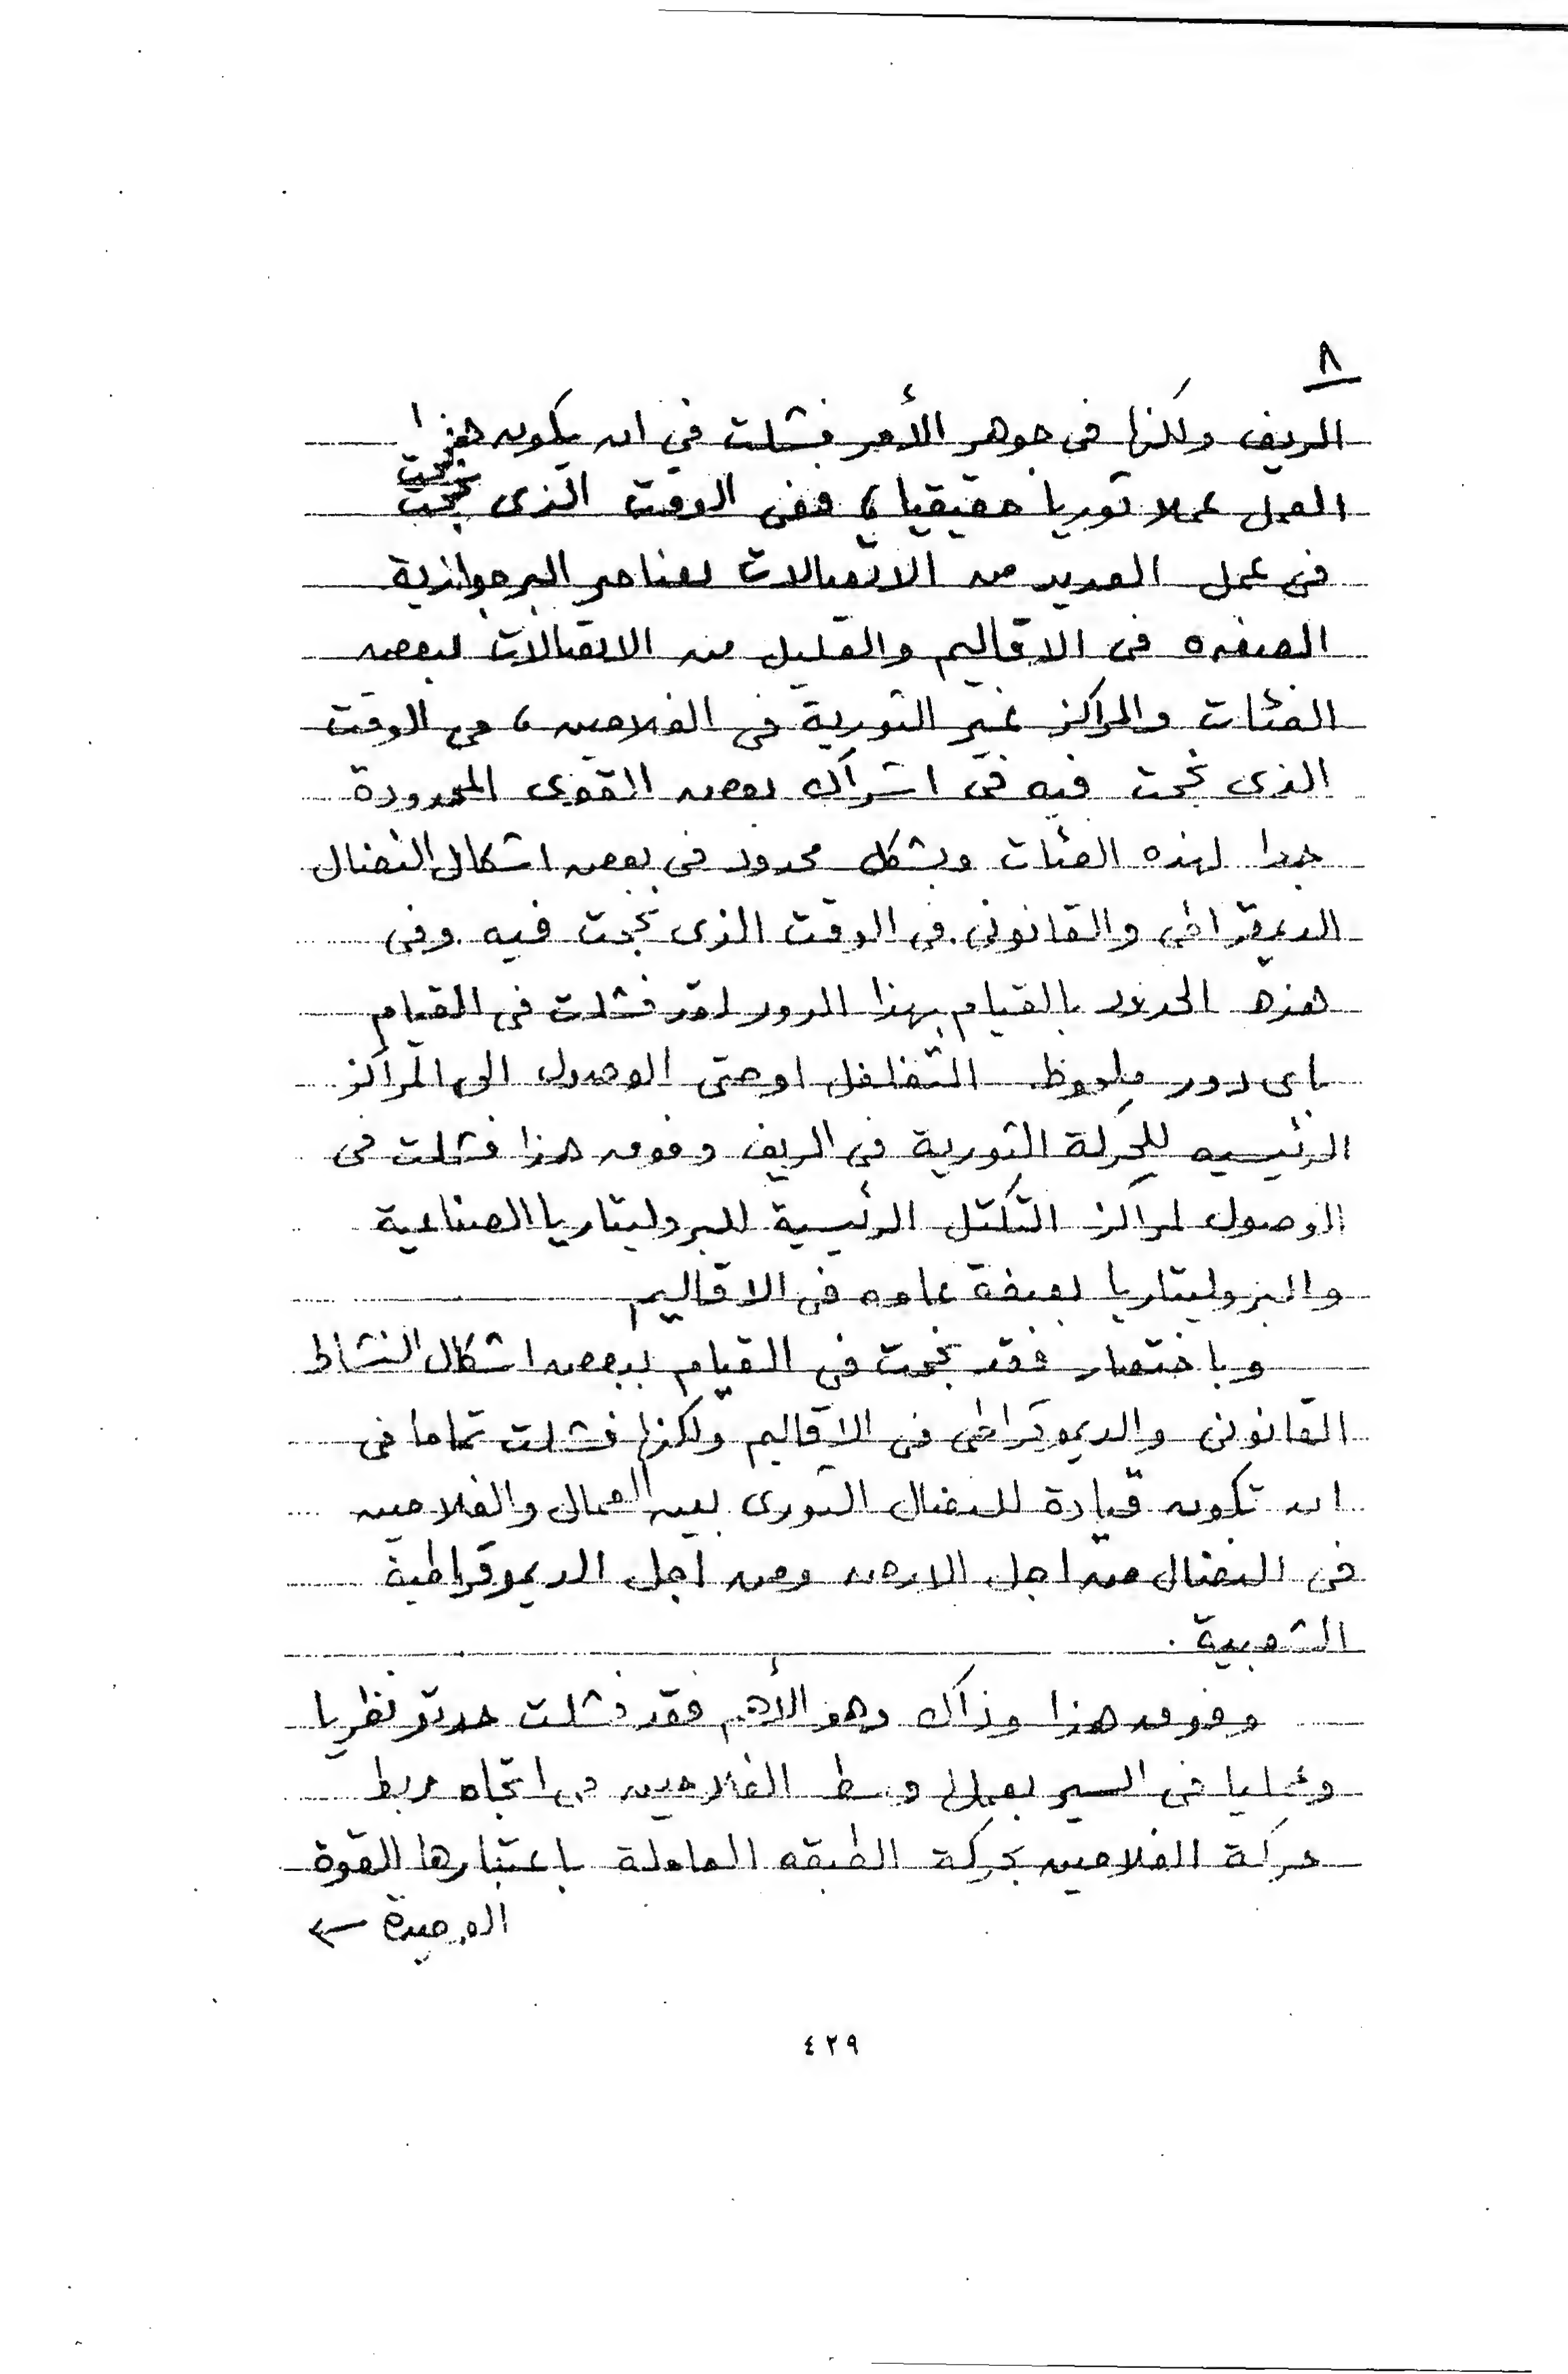 ٨
الريف ولكنها فى جوهر الأمر فشلت في ان يكون هذا
العمل عملا ثوريا حقيقيا، ففى الوقت الذى نجحت
فى عمل العديد من الاتصالات لعناصر البرجوازية
الصغيره فى الاقاليم والقليل من الاتصالات لبعض
الفئات والمراكز غير الثورية فى الفلاحين، فى الوقت
الذى نجحت فيه فى اشراك بعض القوى المحدودة
جدا لهذه الفئات وبشكل محدود فى بعض اشكال النضال
الديمقراطى والقانونى. فى الوقت الذى نجحت فيه وفى
هذه الحدود بالقيام بهذا الدور لقد فشلت فى القيام
باى دور ملحوظ التغلغل اوحتى الوصول الى المراكز
الرئيسيه للحركة الثورية فى الريف وفوق هذا فشلت فى
الوصول لمراكز التكتل الرئيسية للبروليتاريا الصناعية
والبروليتاريا بصفة عامه فى الاقاليم
وباختصار فقد نجحت فى القيام ببعض اشكال النشاط
القانونى والديموقراطى فى الاقاليم ولكنها فشلت تماما فى
ان تكون قيادة للنضال الثورى بين العمال والفلاحين
فى النضال من اجل الارض ومن أجل الديموقراطية
الشعبية.
وفوق هذا وذاك وهو الأهم فقد فشلت حدتو نظريا
وعمليا فى السير بعملها وسط الفلاحين فى اتجاه ربط
حركة الفلاحين بحركة الطبقه العاملة باعتبارها القوة
الوحيدة ←
٤٢٩